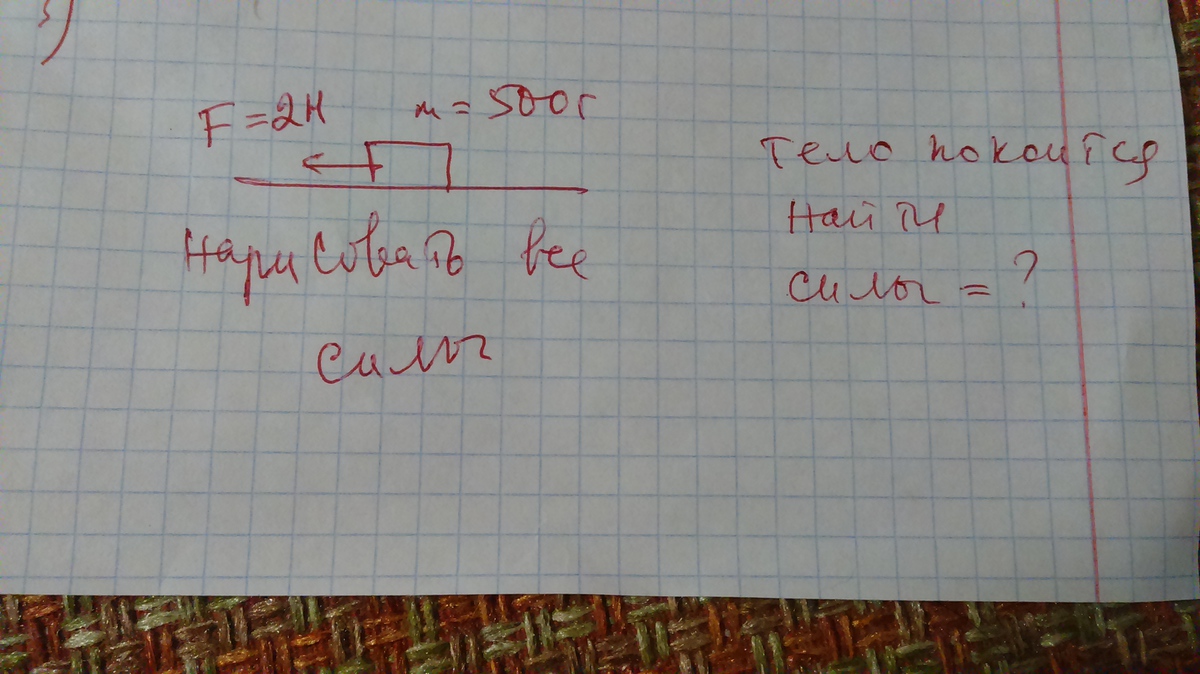 3)
F = 2Н m = 500г
Нарисовать все
силы
Тело покоится
Найти
силы = ?